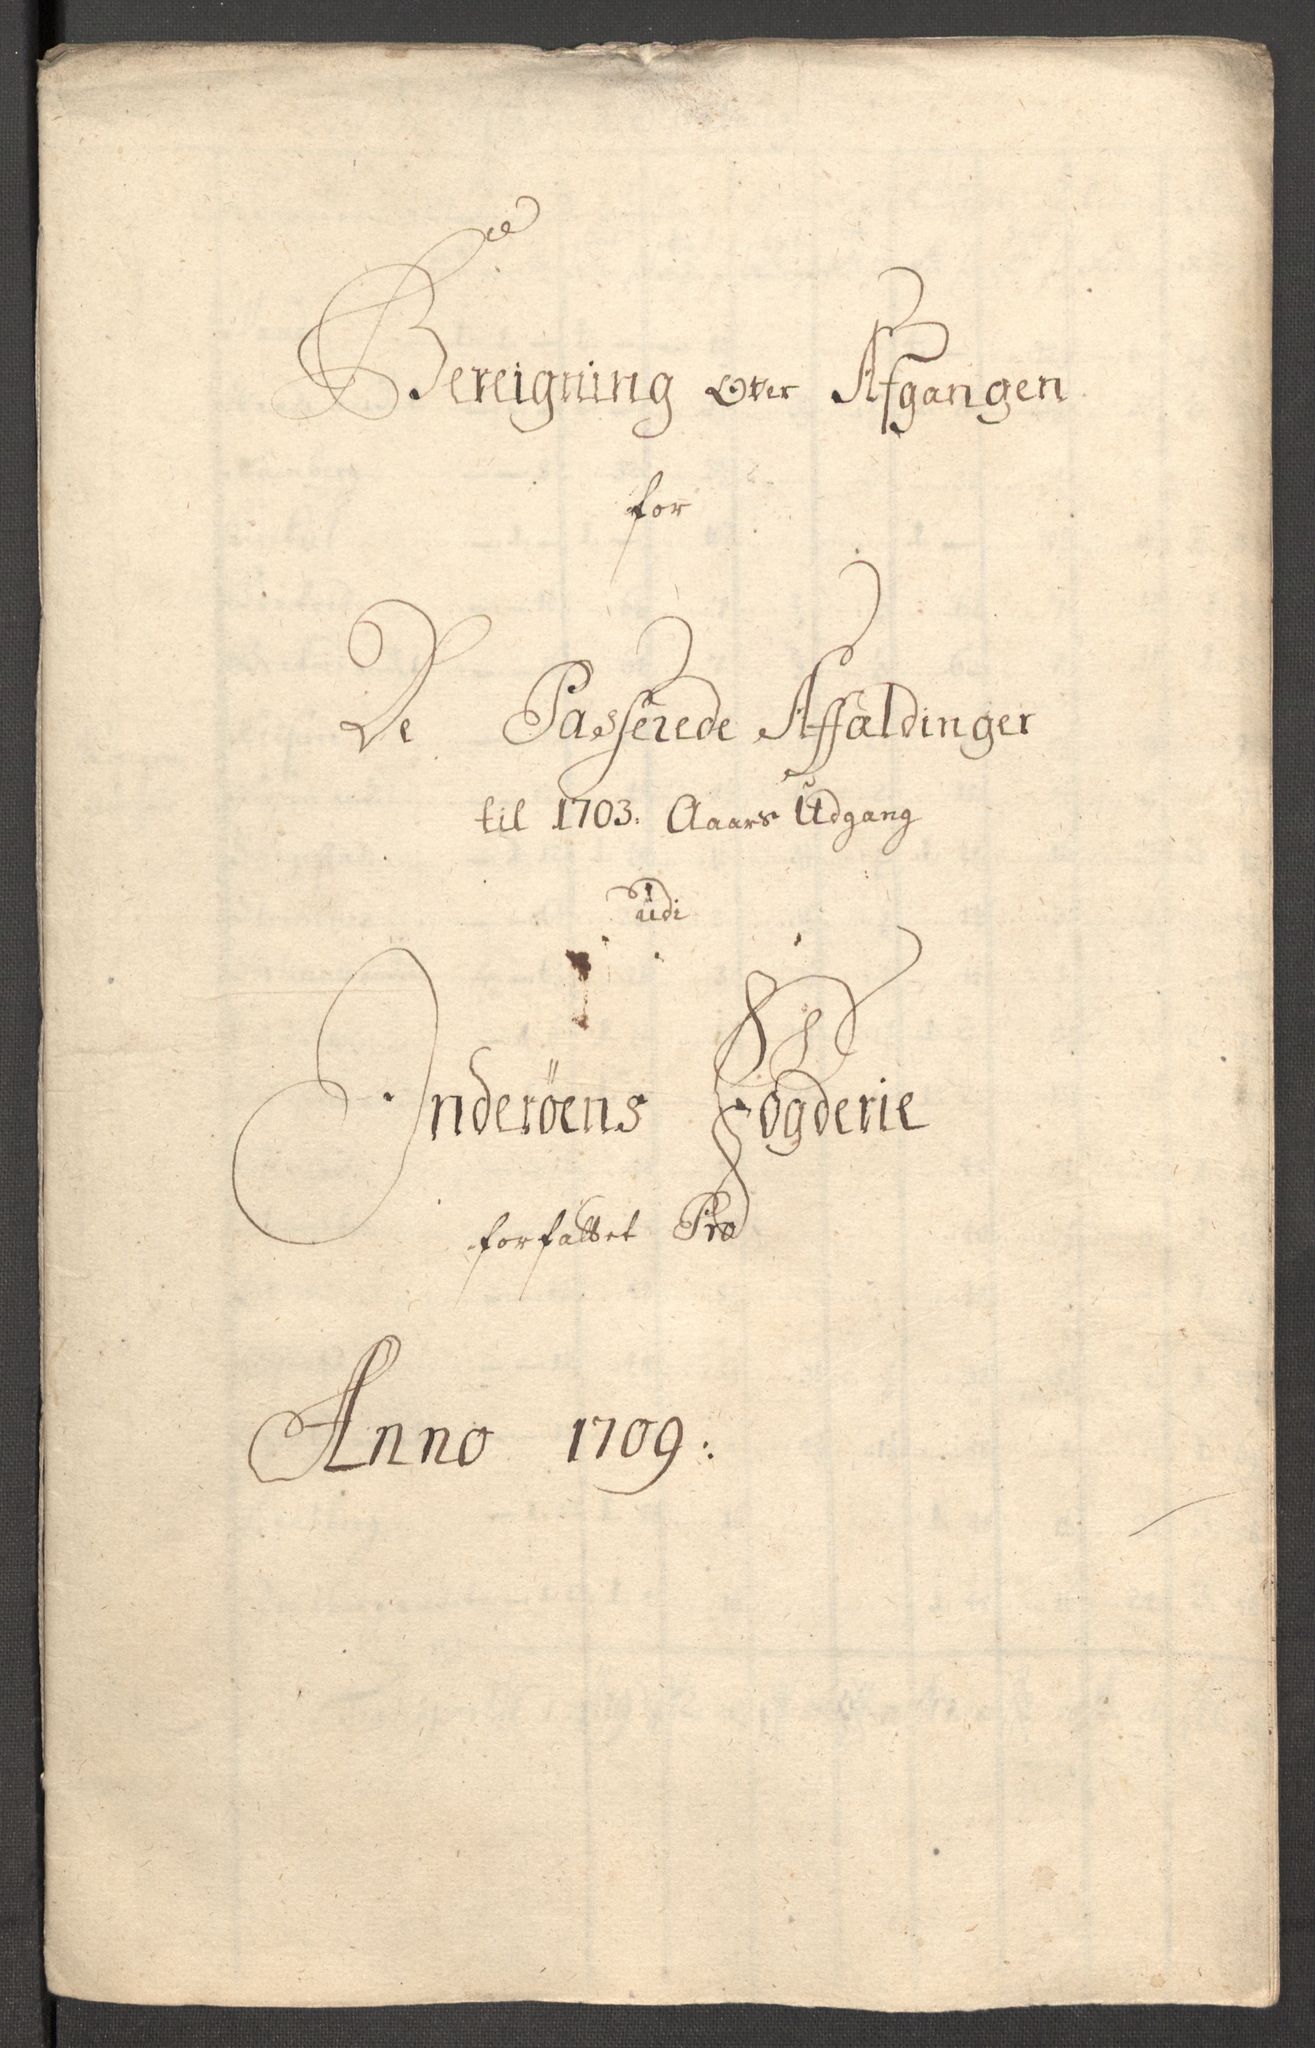 Bereigning over Afgangen
for
De Passerede Affældinger
til 1703. Aaars Udgang
udi
Inderöens Fogderie
forfattet Pro
Anno 1709: